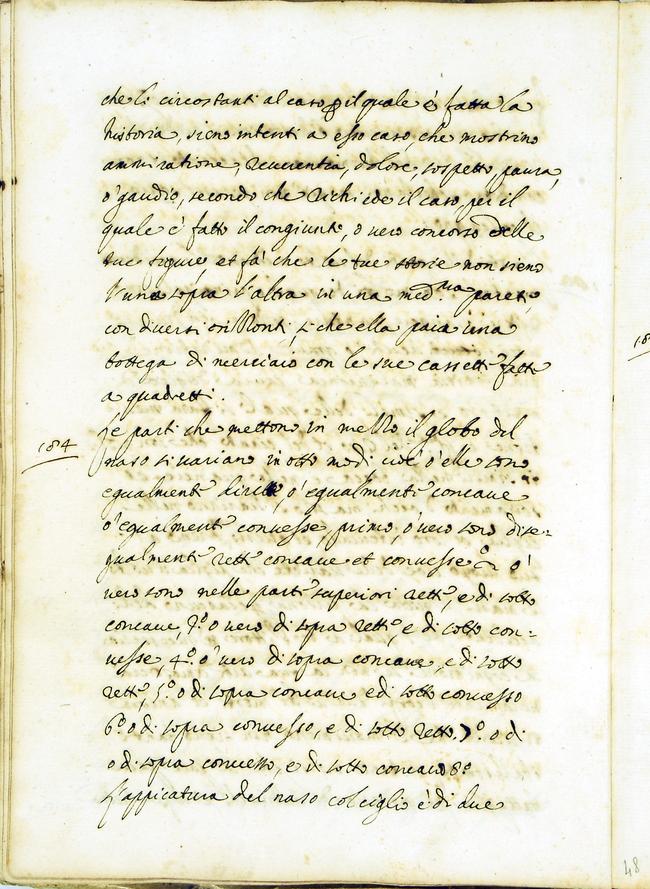 che li circostanti al caso p il quale è fatta la
historia, sieno intenti a esso caso, che mostrino
ammiratione, reverentia, dolore, sospetto, paura,
o' gaudio, secondo che richiede il caso, per il
quale è fatto il congiunto, o vero concorso delle
tue figure, et fa' che le tue storie non sieno
l'una sopra l'altra in una med.ma parete,
con diversi orizzonti, si che ella paia una
bottega di merciaio con le sue cassette fatte
a quadretti.
184
Le parti che mettono in mezzo il globo del
naso si variano in otto modi cioè o' elle sono
egualmente diritte, o' egualmente concave
o' egualmente convesse, primo, o' vero sono dise-
gualmente rette concave et convesse 2º o'
vero sono nelle parti superiori rette, e di sotto
concave, 3º o vero di sopra rette, e di sotto con-
vesse, 4º o' vero di sopra concave, e di sotto
rette, 5º o di sopra concave e di sotto convesso
6º o di sopra convesso, e di sotto retto. 7º o di
o di sopra convesso, e di sotto concavo 8º
L'appicatura del naso col ciglio è di due
48